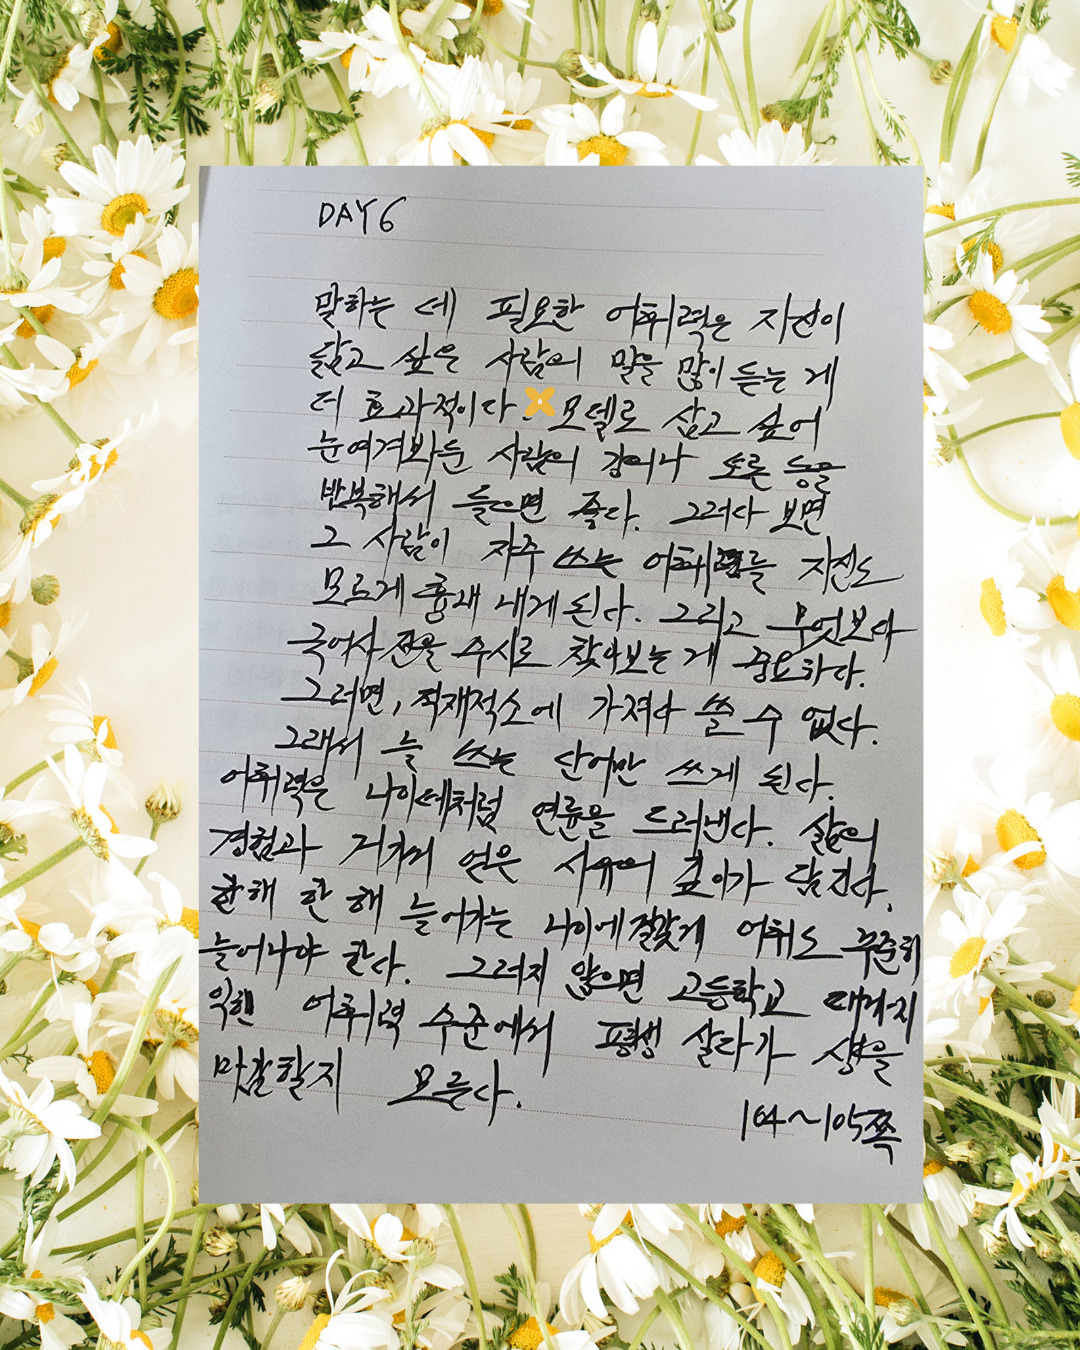 DAY 6
말하는 데 필요한 어휘력은 자신이
닮고 싶은 사람의 말을 많이 듣는 게
더 효과적이다. 모델로 삼고 싶어
눈여겨봐둔 사람의 강의나 토론 등을
반복해서 들으면 좋다. 그러다 보면
그 사람이 자주 쓰는 어휘력들을 자신도
모르게 흉내 내게 된다. 그리고 무엇보다
국어사전을 수시로 찾아보는 게 중요하다.
그러면, 적재적소에 가져다 쓸 수 없다.
그래서 늘 쓰는 단어만 쓰게 된다.
어휘력은 나이테처럼 연륜을 드러낸다. 삶의
경험과 거기서 얻은 사유의 깊이가 담긴다.
한 해 한 해 늘어가는 나이에 걸맞게 어휘도 꾸준히
늘어나야 한다. 그러지 않으면 고등학교 때까지
익힌 어휘력 수준에서 평생 살다가 생을
마감할지 모른다.
104~105쪽